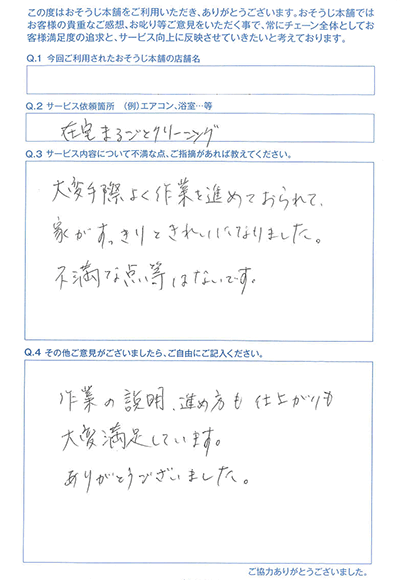 この度はおそうじ本舗をご利用いただき、ありがとうございます。おそうじ本舗では
お客様の貴重なご感想、お叱り等ご意見をいただく事で、常にチェーン全体としてお
客様満足度の追求と、サービス向上に反映させていきたいと考えております。
Q.1 今回ご利用されたおそうじ本舗の店舗名
Q.2 サービス依頼箇所 (例)エアコン、浴室…等
在宅まるごとクリーニング
Q.3 サービス内容について不満な点、ご指摘があれば教えてください。
大変手際よく作業を進めておられて、
家がすっきりときれいになりました。
不満な点等はないです。
Q.4 その他ご意見がございましたら、ご自由にご記入ください。
作業の説明、進め方も仕上がりも
大変満足しています。
ありがとうございました。
ご協力ありがとうございました。